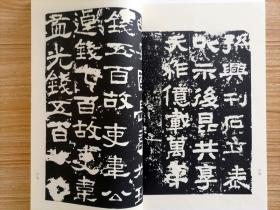 孫興刊石立表
以示後昆共享
天祚億載萬年
錢五百故吏韋公
錢七百故吏韋
孟光錢五百故